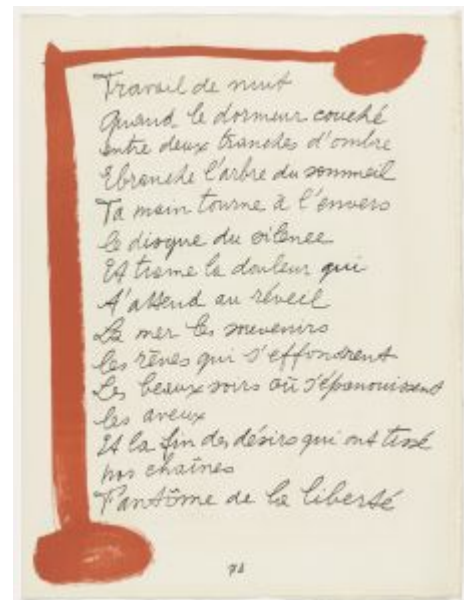 Travail de nuit
Quand le dormeur couché
entre deux tranches d'ombre
Ebranche l'arbre du sommeil
Ta main tourne à l'envers
le disque du silence
Et trame la douleur qui
t'attend au réveil
La mer les souvenirs
les rênes qui s'effondrent
Les beaux soirs où s'épanouissent
les aveux
Et la fin des désirs qui ont tissé
nos chaînes
Fantôme de la liberté